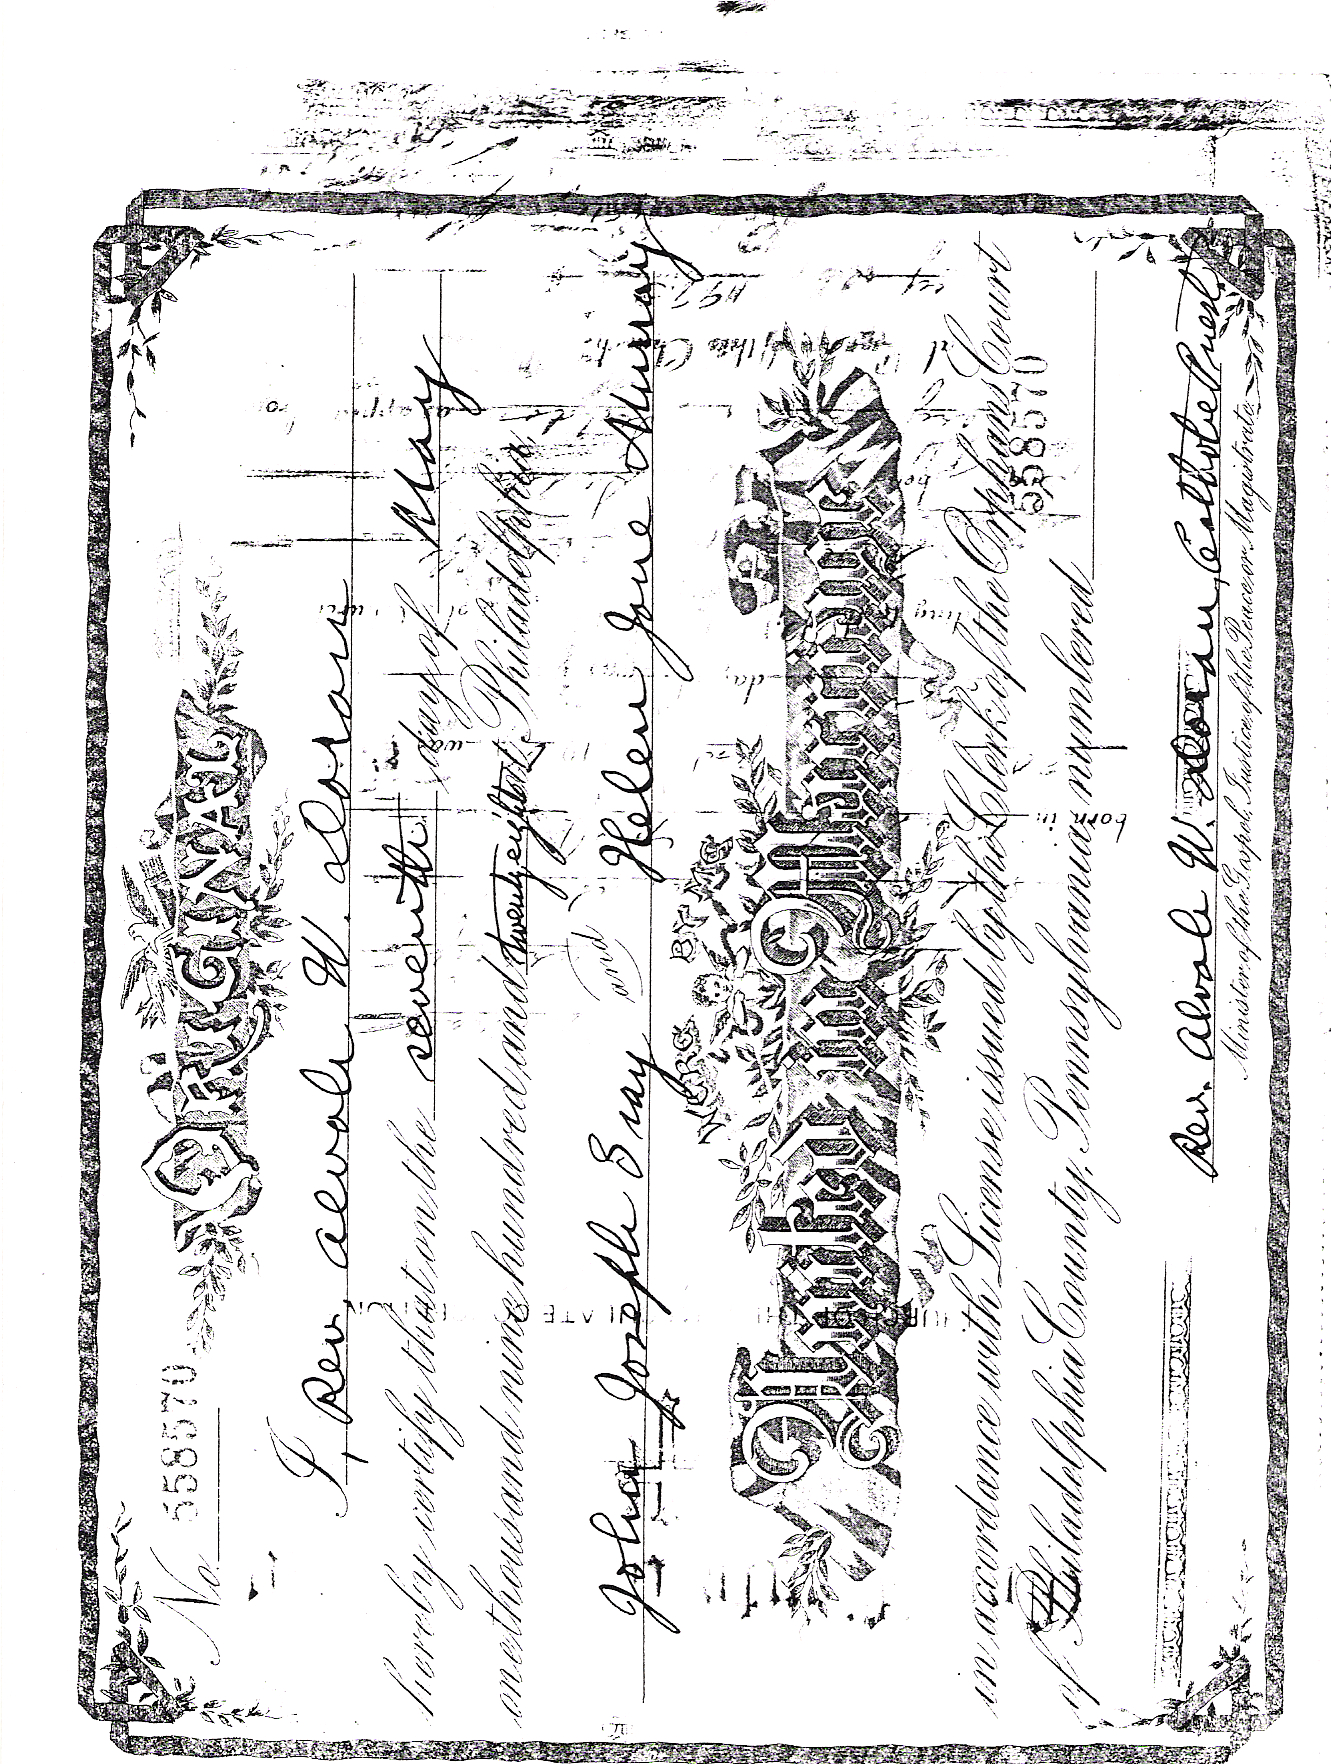 ORIGINAL
No. 558570
I, Rev. Alvah W. Doran
hereby certify that on the seventh day of May
one thousand nine hundred and twenty eight at Philadelphia
John Joseph Gray and Helen Jane Murray
WERE BY ME
United in Marriage
in accordance with License issued by the Clerk of the Orphans Court
of Philadelphia County, Pennsylvania numbered 558570
Rev. Alvah W. Doran, Catholic Priest
Minister of the Gospel, Justice of the Peace or Magistrate.